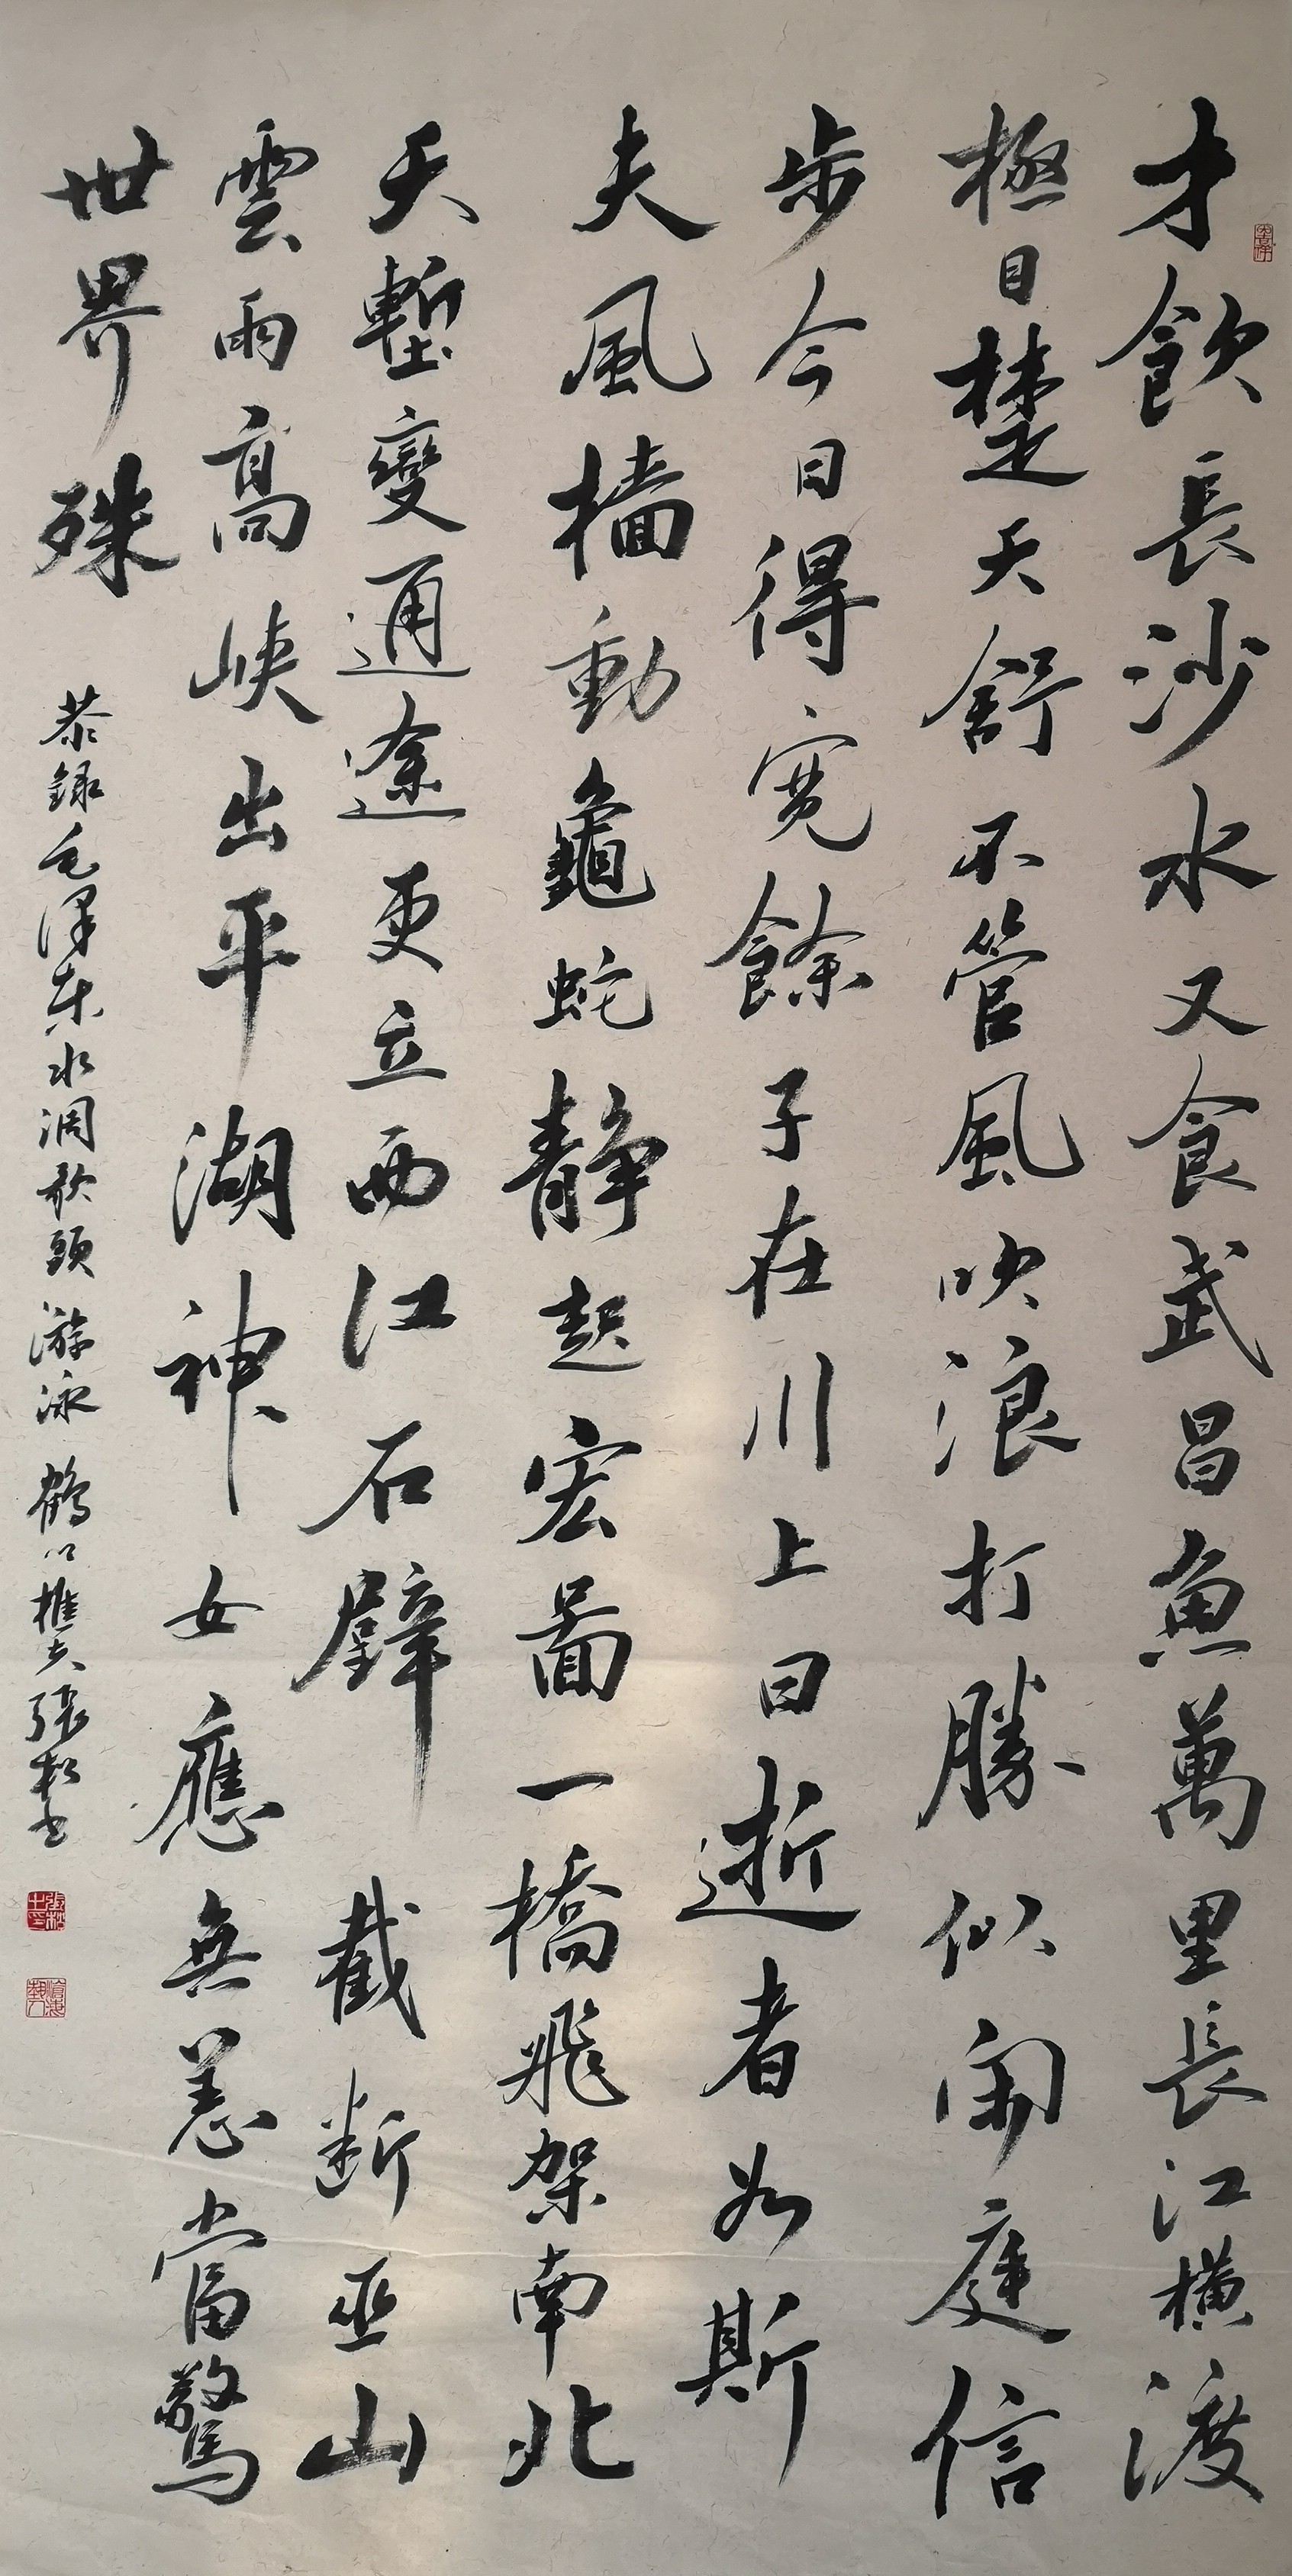 才飲長沙水又食武昌魚萬里長江橫渡
極目楚天舒不管風吹浪打勝似閑庭信
步今日得寛餘子在川上曰逝者如斯
夫風檣動龜蛇静起宏圖一橋飛架南北
天塹變通途更立西江石壁截断巫山
雲雨髙峽出平湖神女應無恙當驚
世界殊
恭錄毛澤東水調歌頭游泳鶴山樵夫張松書